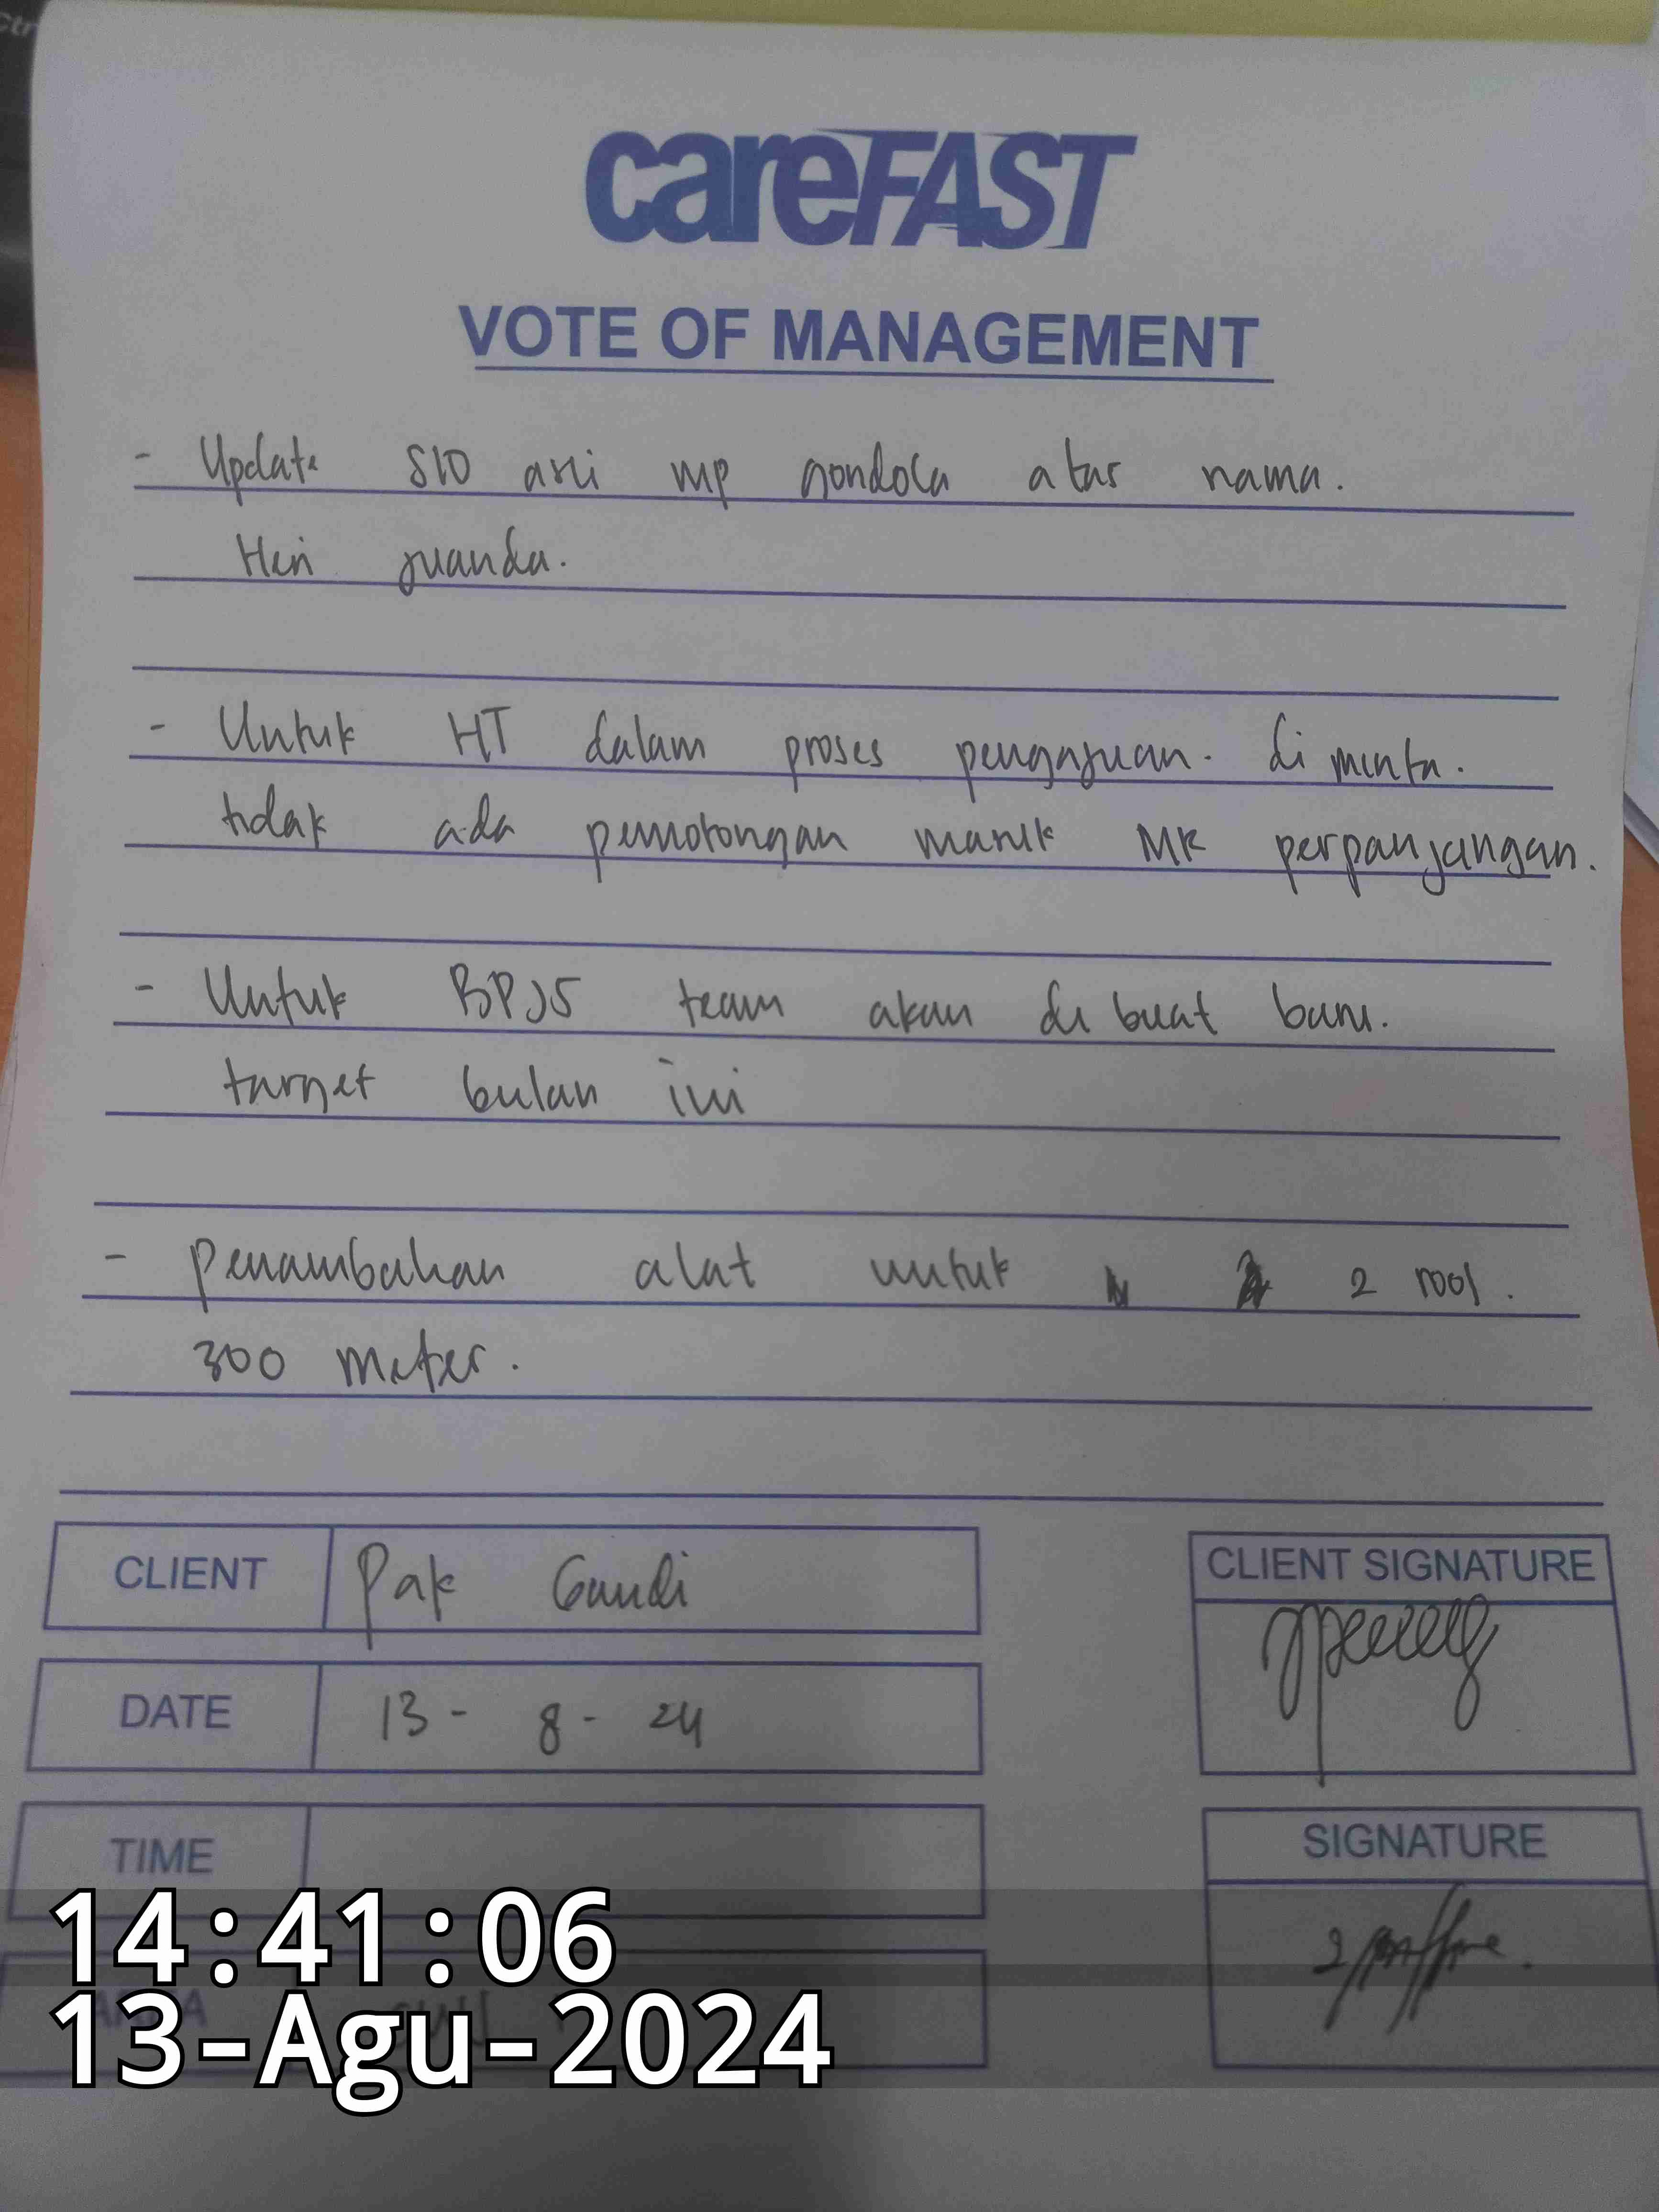 careFAST
VOTE OF MANAGEMENT
- Update SIO asli mp gondola atas nama.
Heri Juanda.
- Untuk HT dalam proses pengajuan. di minta.
tidak ada pemotongan masuk MK perpanjangan.
- Untuk BPJS team akan di buat baru.
target bulan ini
- Penambahan alat untuk 2 rool.
300 meter.
CLIENT Pak Gandi
DATE 13 - 8 - 24
TIME
AREA
CLIENT SIGNATURE
SIGNATURE
14:41:06
13-Agu-2024